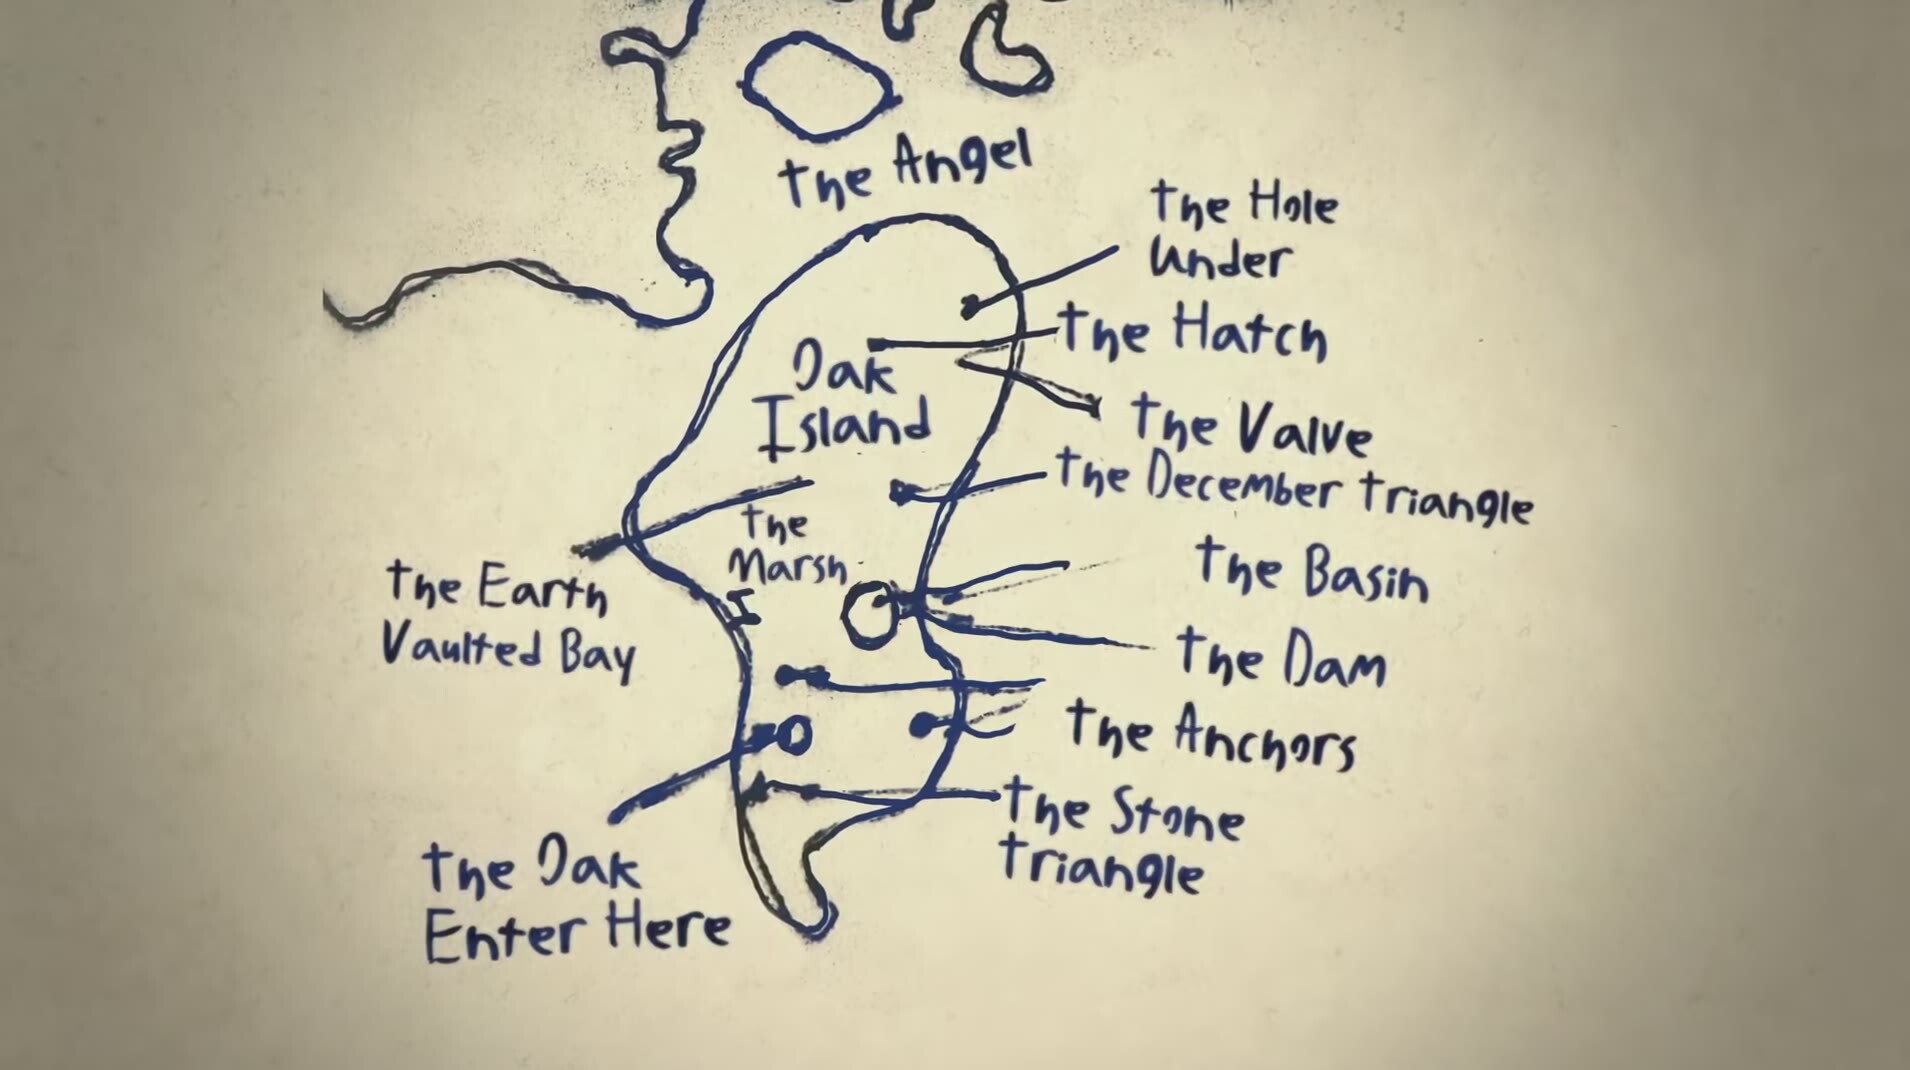 The Angel
The Hole
Under
The Hatch
Oak
Island
The Valve
The December Triangle
The
Marsh
The Basin
The Earth
Vaulted Bay
The Dam
The Anchors
The Stone
Triangle
The Oak
Enter Here